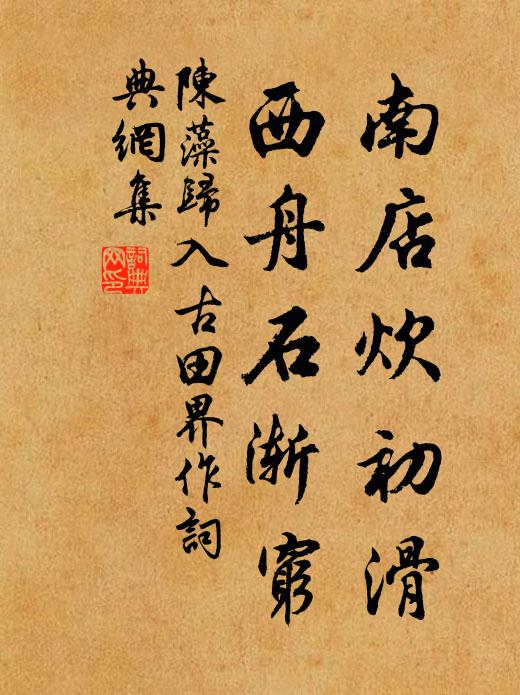 南店炊初滑
西舟石渐窮
陳藻歸入古田界作詞
典網集
詞典網印